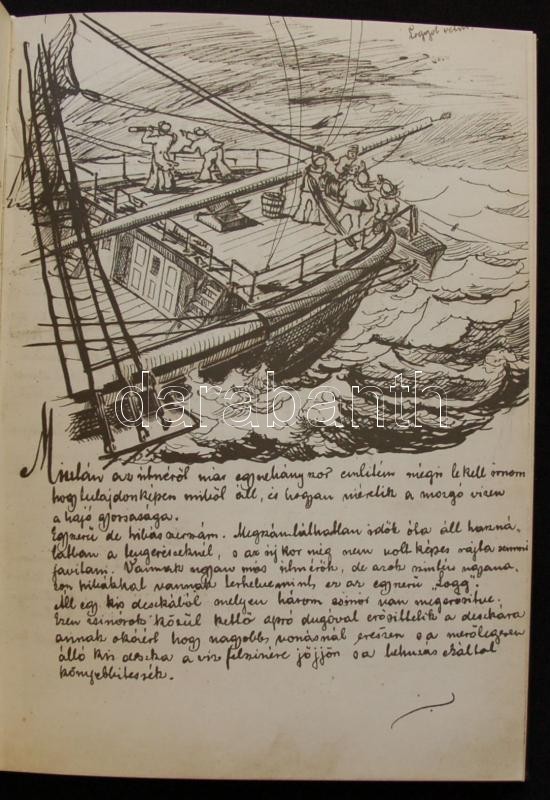 Loggol
darabanth
Miután az útmérőről már egynehányszor említém mégis le kell írnom
hogy tulajdonképen miből áll, és hogyan méretik a mozgó vizen
a hajó gyorsasága.
Egyszerű de hibás szerszám. Megszámlálhatlan idők óta áll haszná-
latban a tengerészeknél, s az új kor még nem volt képes rajta semmit
javítani. Vannak ugyan más útmérők, de azok szintén ugyana-
zon hibákkal vannak terhelve mint ez az egyszerű „Logg".
Áll egy kis deszkából melyen három zsinór van megerősítve.
Ezen zsinórok közül kettő apró dugóval erősíttetik a deszkára
annak okáért hogy nagyobb vonásnál ereszen s a merőlegesen
álló kis deszka a víz felszínére jöjjön s a behuzás ezáltal
könyebbítessék.